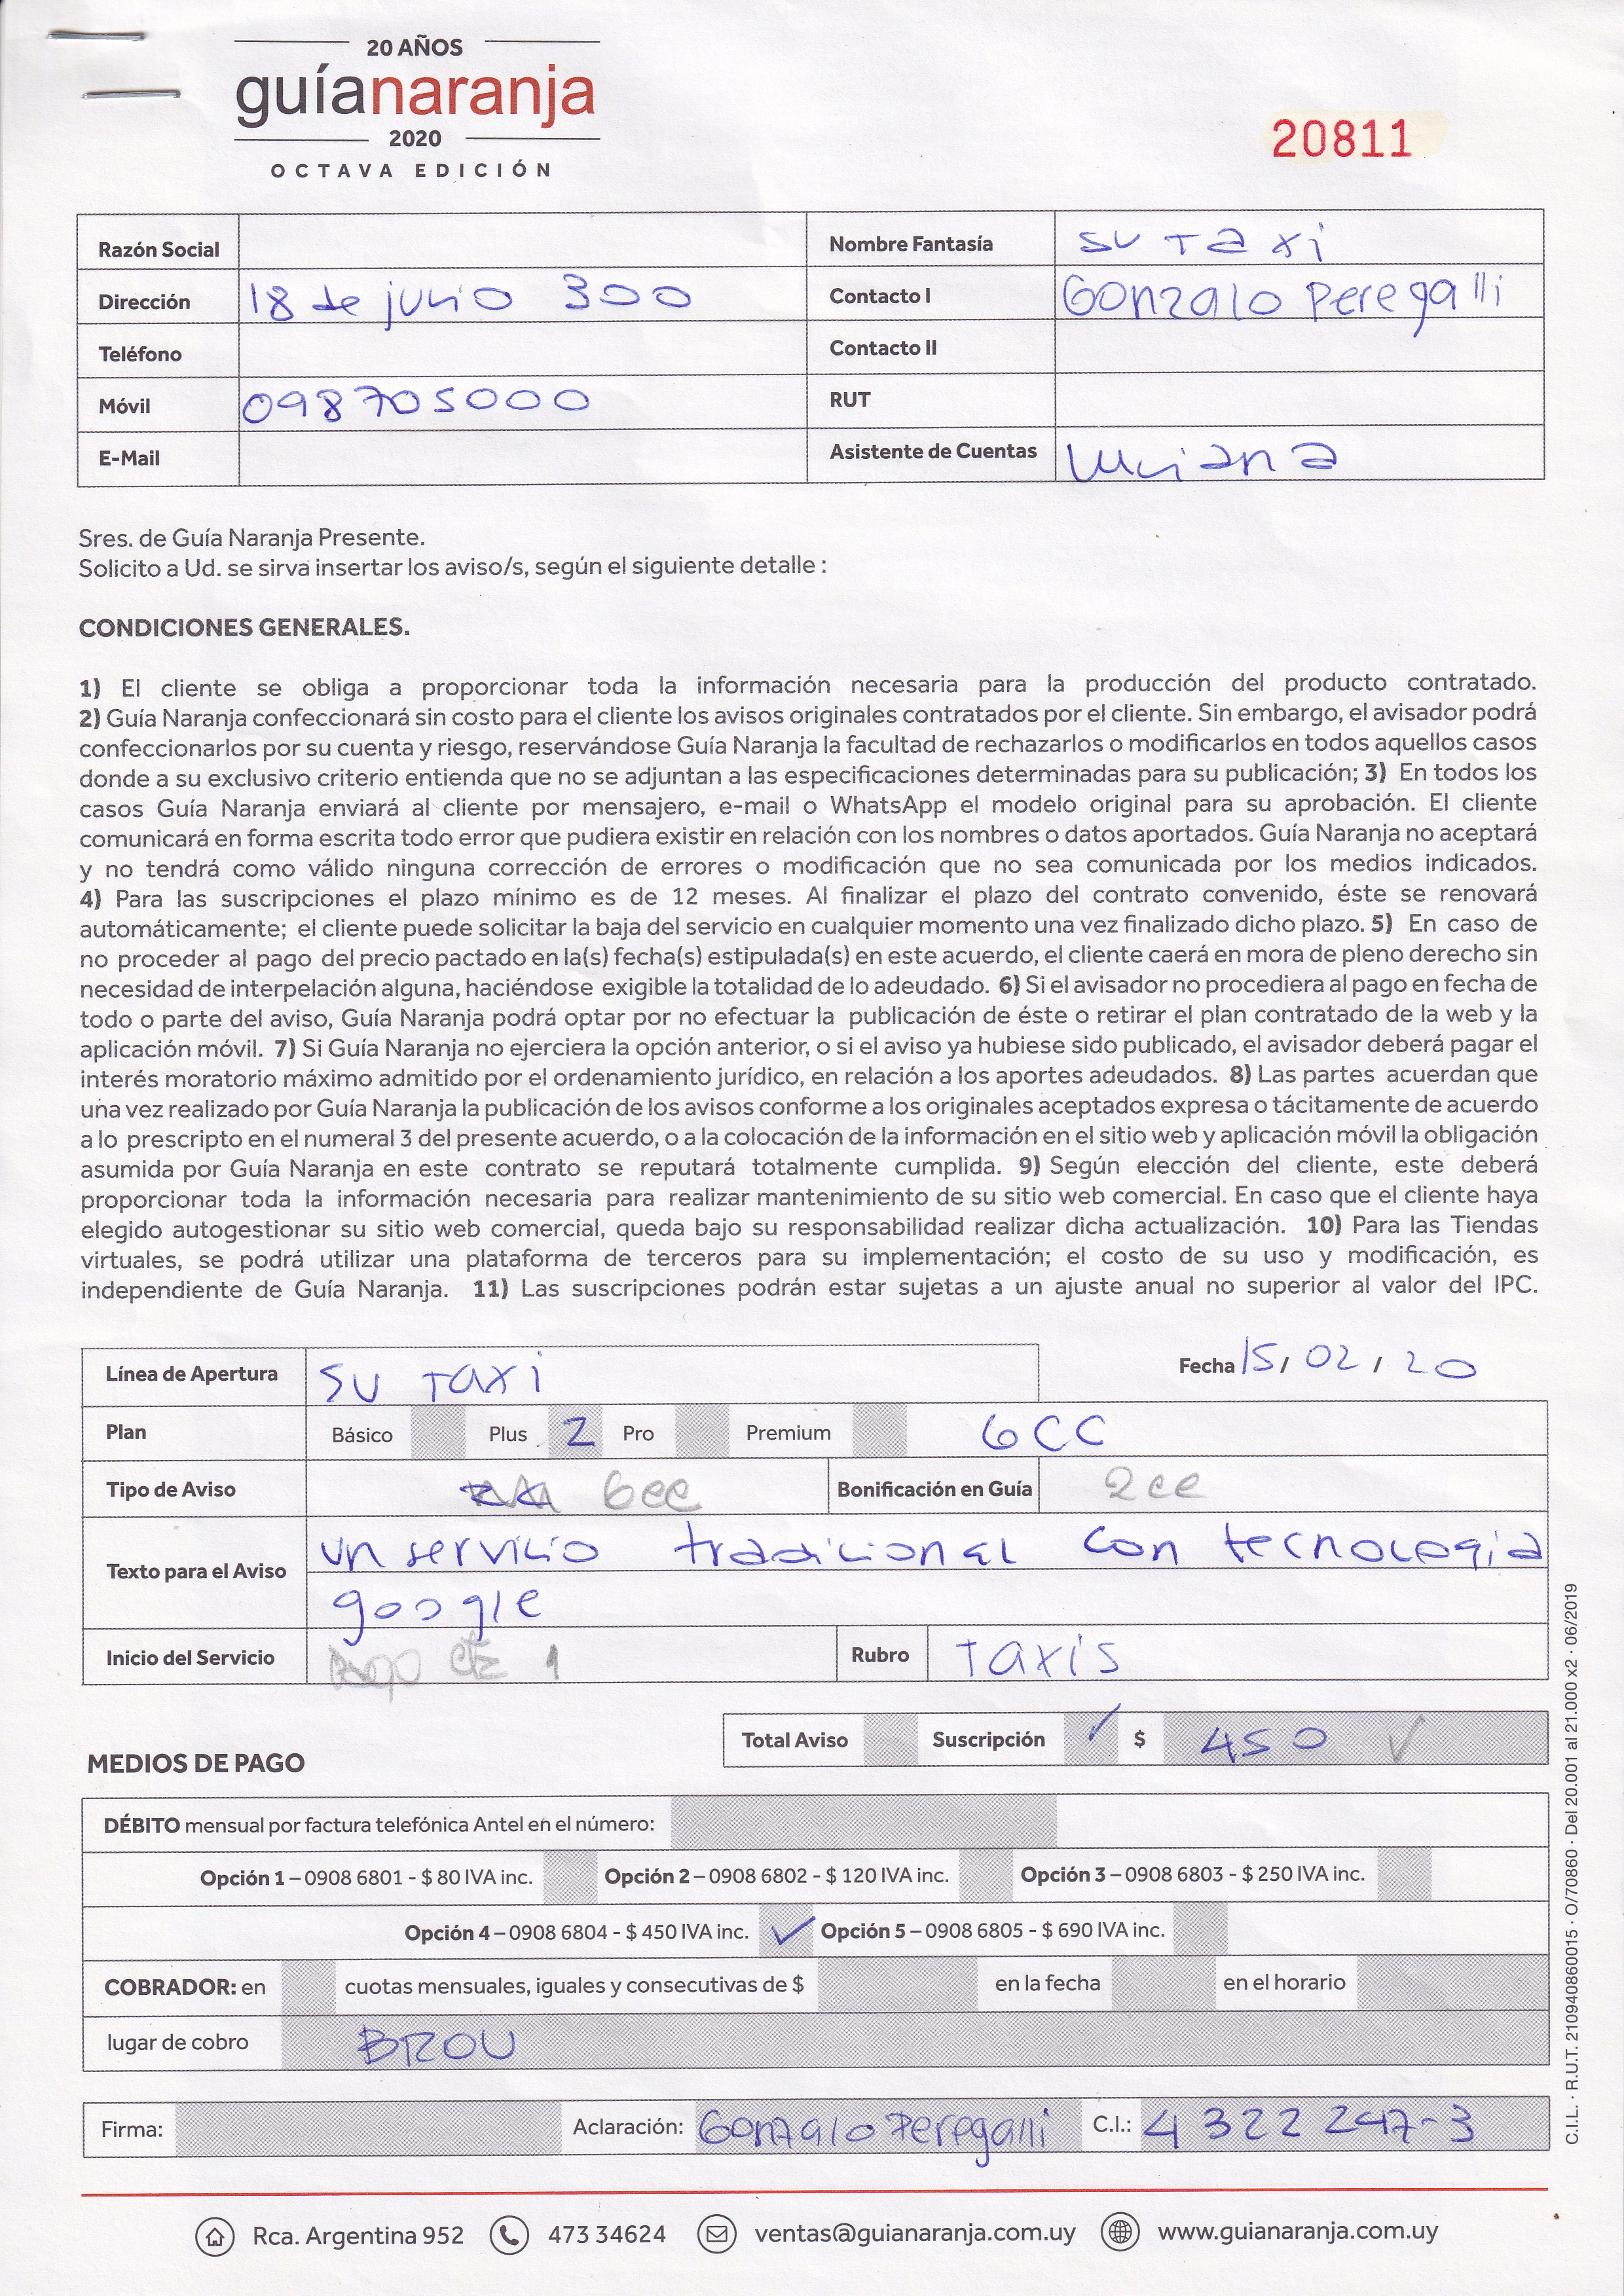 20 AÑOS
guíanaranja
2020
OCTAVA EDICIÓN
20811
Razón Social Nombre Fantasía SU TAXI
Dirección 18 de julio 300 Contacto I Gonzalo Peregalli
Teléfono Contacto II
Móvil 098705000 RUT
E-Mail Asistente de Cuentas Luciana
Sres. de Guía Naranja Presente.
Solicito a Ud. se sirva insertar los aviso/s, según el siguiente detalle :
CONDICIONES GENERALES.
1) El cliente se obliga a proporcionar toda la información necesaria para la producción del producto contratado.
2) Guía Naranja confeccionará sin costo para el cliente los avisos originales contratados por el cliente. Sin embargo, el avisador podrá
confeccionarlos por su cuenta y riesgo, reservándose Guía Naranja la facultad de rechazarlos o modificarlos en todos aquellos casos
donde a su exclusivo criterio entienda que no se adjuntan a las especificaciones determinadas para su publicación; 3) En todos los
casos Guía Naranja enviará al cliente por mensajero, e-mail o WhatsApp el modelo original para su aprobación. El cliente
comunicará en forma escrita todo error que pudiera existir en relación con los nombres o datos aportados. Guía Naranja no aceptará
y no tendrá como válido ninguna corrección de errores o modificación que no sea comunicada por los medios indicados.
4) Para las suscripciones el plazo mínimo es de 12 meses. Al finalizar el plazo del contrato convenido, éste se renovará
automáticamente; el cliente puede solicitar la baja del servicio en cualquier momento una vez finalizado dicho plazo. 5) En caso de
no proceder al pago del precio pactado en la(s) fecha(s) estipulada(s) en este acuerdo, el cliente caerá en mora de pleno derecho sin
necesidad de interpelación alguna, haciéndose exigible la totalidad de lo adeudado. 6) Si el avisador no procediera al pago en fecha de
todo o parte del aviso, Guía Naranja podrá optar por no efectuar la publicación de éste o retirar el plan contratado de la web y la
aplicación móvil. 7) Si Guía Naranja no ejerciera la opción anterior, o si el aviso ya hubiese sido publicado, el avisador deberá pagar el
interés moratorio máximo admitido por el ordenamiento jurídico, en relación a los aportes adeudados. 8) Las partes acuerdan que
una vez realizado por Guía Naranja la publicación de los avisos conforme a los originales aceptados expresa o tácitamente de acuerdo
a lo prescripto en el numeral 3 del presente acuerdo, o a la colocación de la información en el sitio web y aplicación móvil la obligación
asumida por Guía Naranja en este contrato se reputará totalmente cumplida. 9) Según elección del cliente, este deberá
proporcionar toda la información necesaria para realizar mantenimiento de su sitio web comercial. En caso que el cliente haya
elegido autogestionar su sitio web comercial, queda bajo su responsabilidad realizar dicha actualización. 10) Para las Tiendas
virtuales, se podrá utilizar una plataforma de terceros para su implementación; el costo de su uso y modificación, es
independiente de Guía Naranja. 11) Las suscripciones podrán estar sujetas a un ajuste anual no superior al valor del IPC.
Línea de Apertura SU TAXI Fecha 15 / 02 / 20
Plan Básico Plus 2 Pro Premium 6CC
Tipo de Aviso 6cc Bonificación en Guía 2cc
Texto para el Aviso un servicio tradicional con tecnologia
google
Inicio del Servicio 1 Rubro Taxis
Total Aviso Suscripción ✓ $ 450 ✓
MEDIOS DE PAGO
DÉBITO mensual por factura telefónica Antel en el número:
Opción 1 – 0908 6801 - $ 80 IVA inc. Opción 2 – 0908 6802 - $ 120 IVA inc. Opción 3 – 0908 6803 - $ 250 IVA inc.
Opción 4 – 0908 6804 - $ 450 IVA inc. ✓ Opción 5 – 0908 6805 - $ 690 IVA inc.
COBRADOR: en cuotas mensuales, iguales y consecutivas de $ en la fecha en el horario
lugar de cobro BROU
Firma: Aclaración: Gonzalo Peregalli C.I.: 4 322 247-3
Rca. Argentina 952 473 34624 ventas@guianaranja.com.uy www.guianaranja.com.uy
C.I.L. · R.U.T. 210940860015 · O/70860 · Del 20.001 al 21.000 x2 · 06/2019